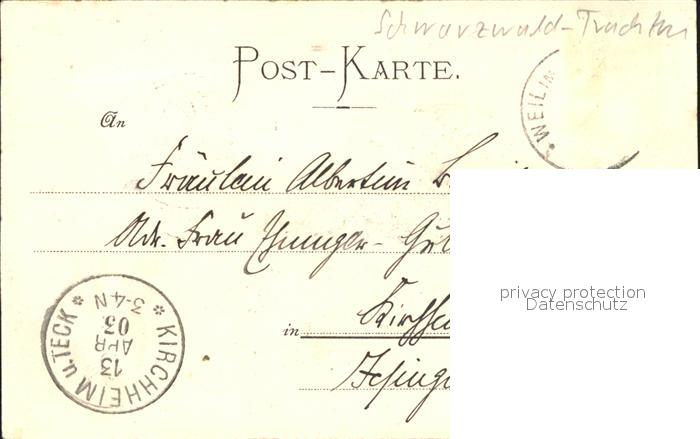 Schwarzwald-Trachten
POST-KARTE.
WEILIM
An
Fräulein Albertine
Adr. Frau
in Kirchhe
KIRCHHEIM u. TECK
13
APR
03
3-4 N
privacy protection
Datenschutz